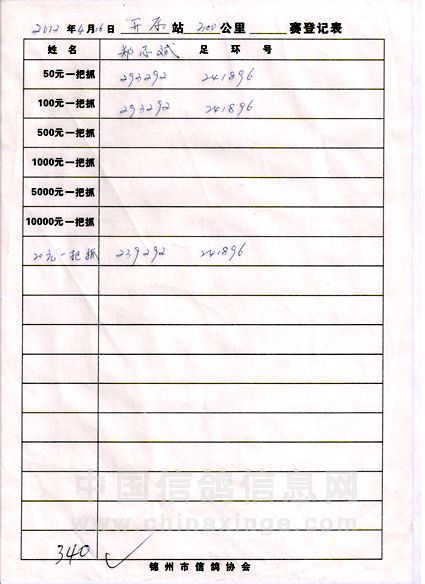 2012年4月16日 开原站 300公里 赛登记表
姓名 郑志斌 足环号
50元一把抓 293292 241896
100元一把抓 293292 241896
500元一把抓
1000元一把抓
5000元一把抓
10000元一把抓
20元一把抓 239292 241896
中国信鸽信息网
www.chinaxinge.com
340 ✓
锦州市信鸽协会